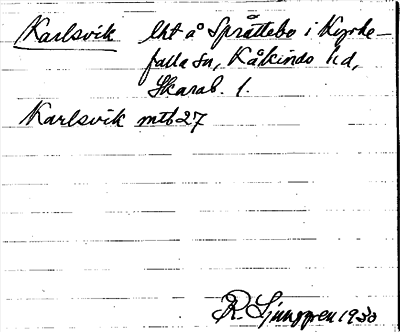 Karlsvik lht å Språttebo i Kyrke-
falla sn, Kåkinds hd,
Skarab. l.
Karlsvik mtb 27
R. Ljunggren 1930